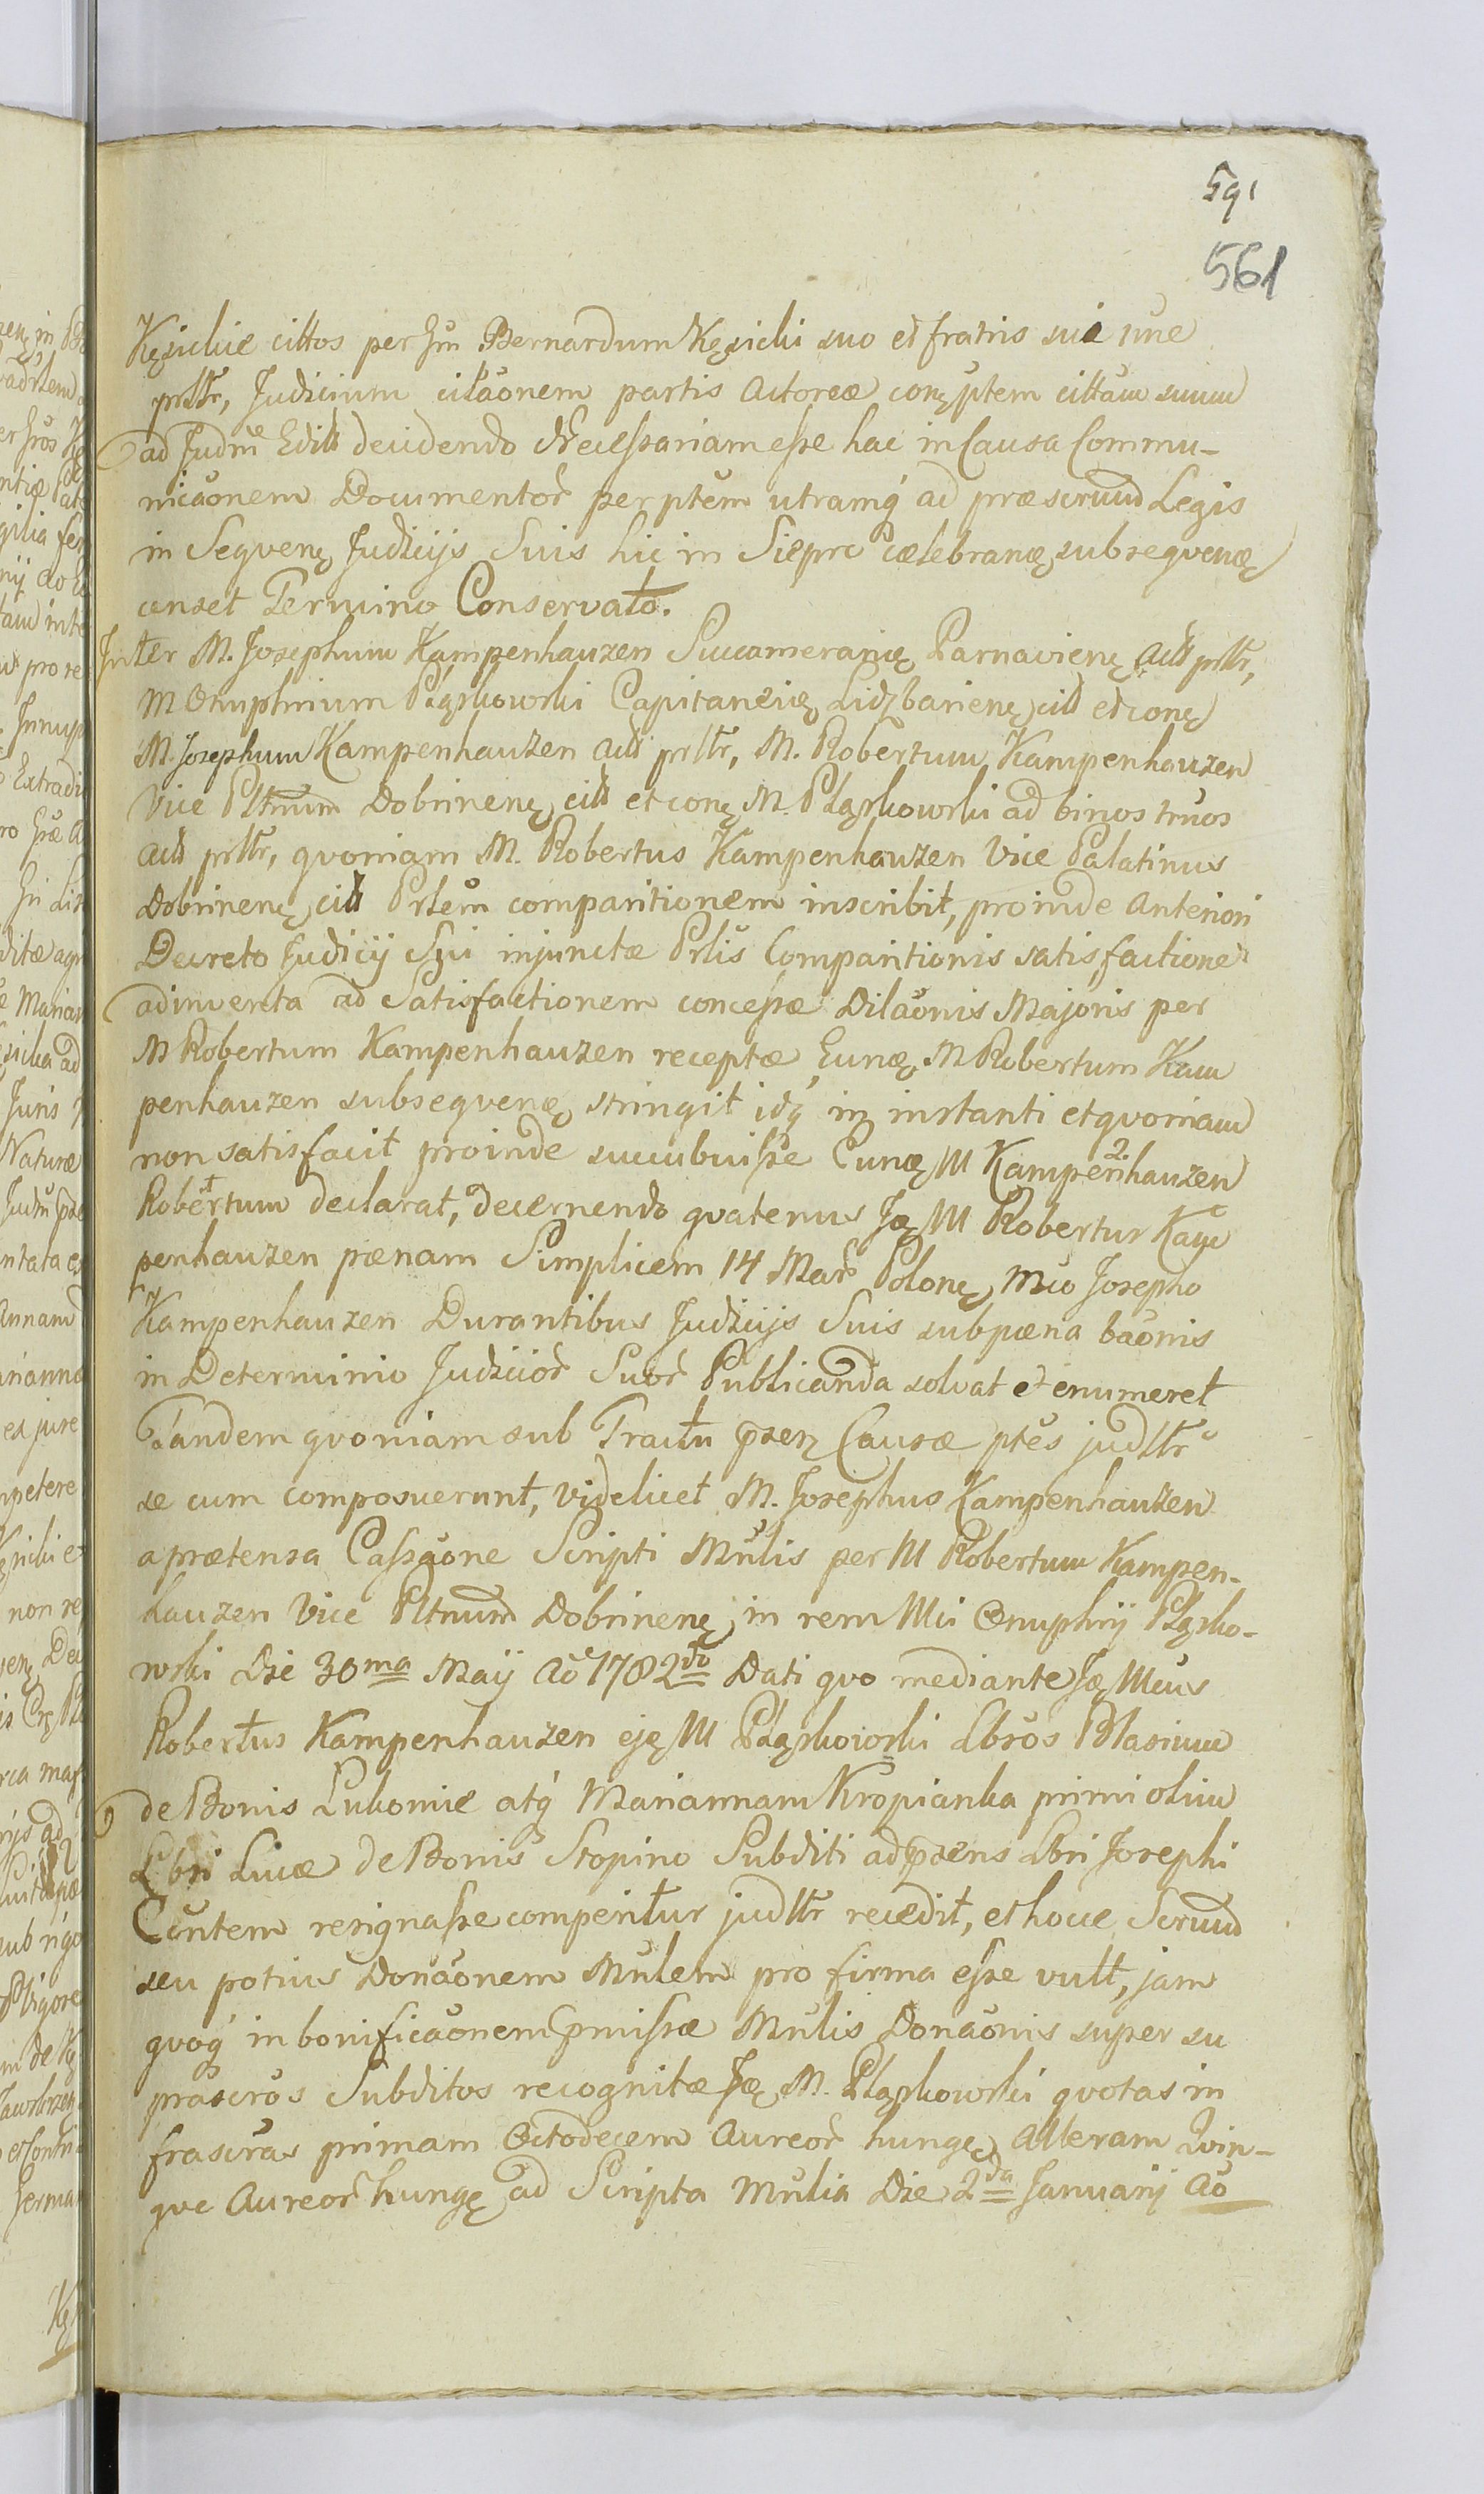 591
561
Kęsickie cittos per Gm Bernardum Kęsicki suo et fratris sui nne
prltr, Judicium citāonem partis Actoreæ conç ptem cittam suum
ad Judm Edill decidendo Necessariam esse hac in Causa Commu-
nicāonem Documentor per ptem utramq́ ad præscruūd Legis
in Seqvenç Judicijs Suis hic in Sieprc cælebranç, subseqvenç
censet Termino Conservato.
Inter M. Josephum Kampenhauzen Succamerariç Parnavienç Act prltr,
M Onuphrium Pląskowski Capitaneiç Lidzbarienç, citt et conç
M. Josephum Kampenhauzen Act prltr, M. Robertum Kampenhauzen
Vice Pltnum Dobrinenç, citt et conç M. Pląskowski ad binos trnos
Act prltr, qvoniam M. Robertus Kampenhauzen Vice Palatinus
Dobrinenç, citt Prlem comparitionem inscribit, proinde Anteriori
Decreto Judicij Sui injunctæ Prlis Comparitionis satisfactione
adinventa ad Satisfactionem concessæ Dilāonis Majoris per
M Robertum Kampenhauzen receptæ Eunç, M Robertum Kam
penhauzen subseqvenç stringit idq́ in instanti et qvoniam
non satisfacit proinde succubuisse Eunç M Kampenhauzen
Robertum declarat, decernendo qvatenus Iç M Robertus Kam
penhauzen pænam Simplicem 14 Mar Polonç, Mco Josepho
Kampenhauzen Durantibus Judicijs Suis sub pæna bāonis
in Determinio Judicior Suor Publicanda solvat et enumeret
Tandem qvoniam sub Tractu præsen Causæ ptes judltr
se cum composuerunt, videlicet M. Josephus Kampenhauzen
a prætensa Cassāone Scripti Mnlis per M Robertum Kampen-
hauzen Vice Pltnum Dobrinenç, in rem Mci Onuphrij Pląsko-
wski Die 30ma Maij Aō 1782do Dati qvo mediante Iç Mcus
Robertus Kampenhauzen ejç M Pląskowski Lbros Blasium
de Bonis Lukomie atq́ Mariannam Kropianka primi olim
Lbri Lucæ de Bonis Stopino Subditi ad præsens Lbri Josephi
Cuntem resignasse comperitur judltr recedit, et hocce Scruūd
seu potius Donāonem Mnlem pro firma esse vult, jam
qvoq́ in bonificāonem præmissæ Mnlis Donāonis super su
præscros Subditos recognitæ Iç M. Pląskowski qvotas in
frascras primam Octodecem Aureor hungç, Alteram Qvin-
qve Aureor hungç ad Scripta Mnlia Die 2da Januarij Aō